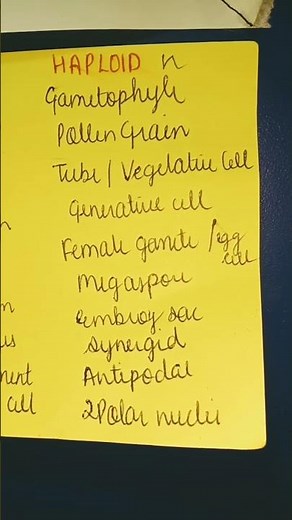 HAPLOID n
Gametophyte
Pollen Grain
Tube / Vegetative Cell
Generative cell
Female gamete / egg
cell
Megaspore
Embroy sac
Synergid
Antipodal
2 Polar nuclii
cell